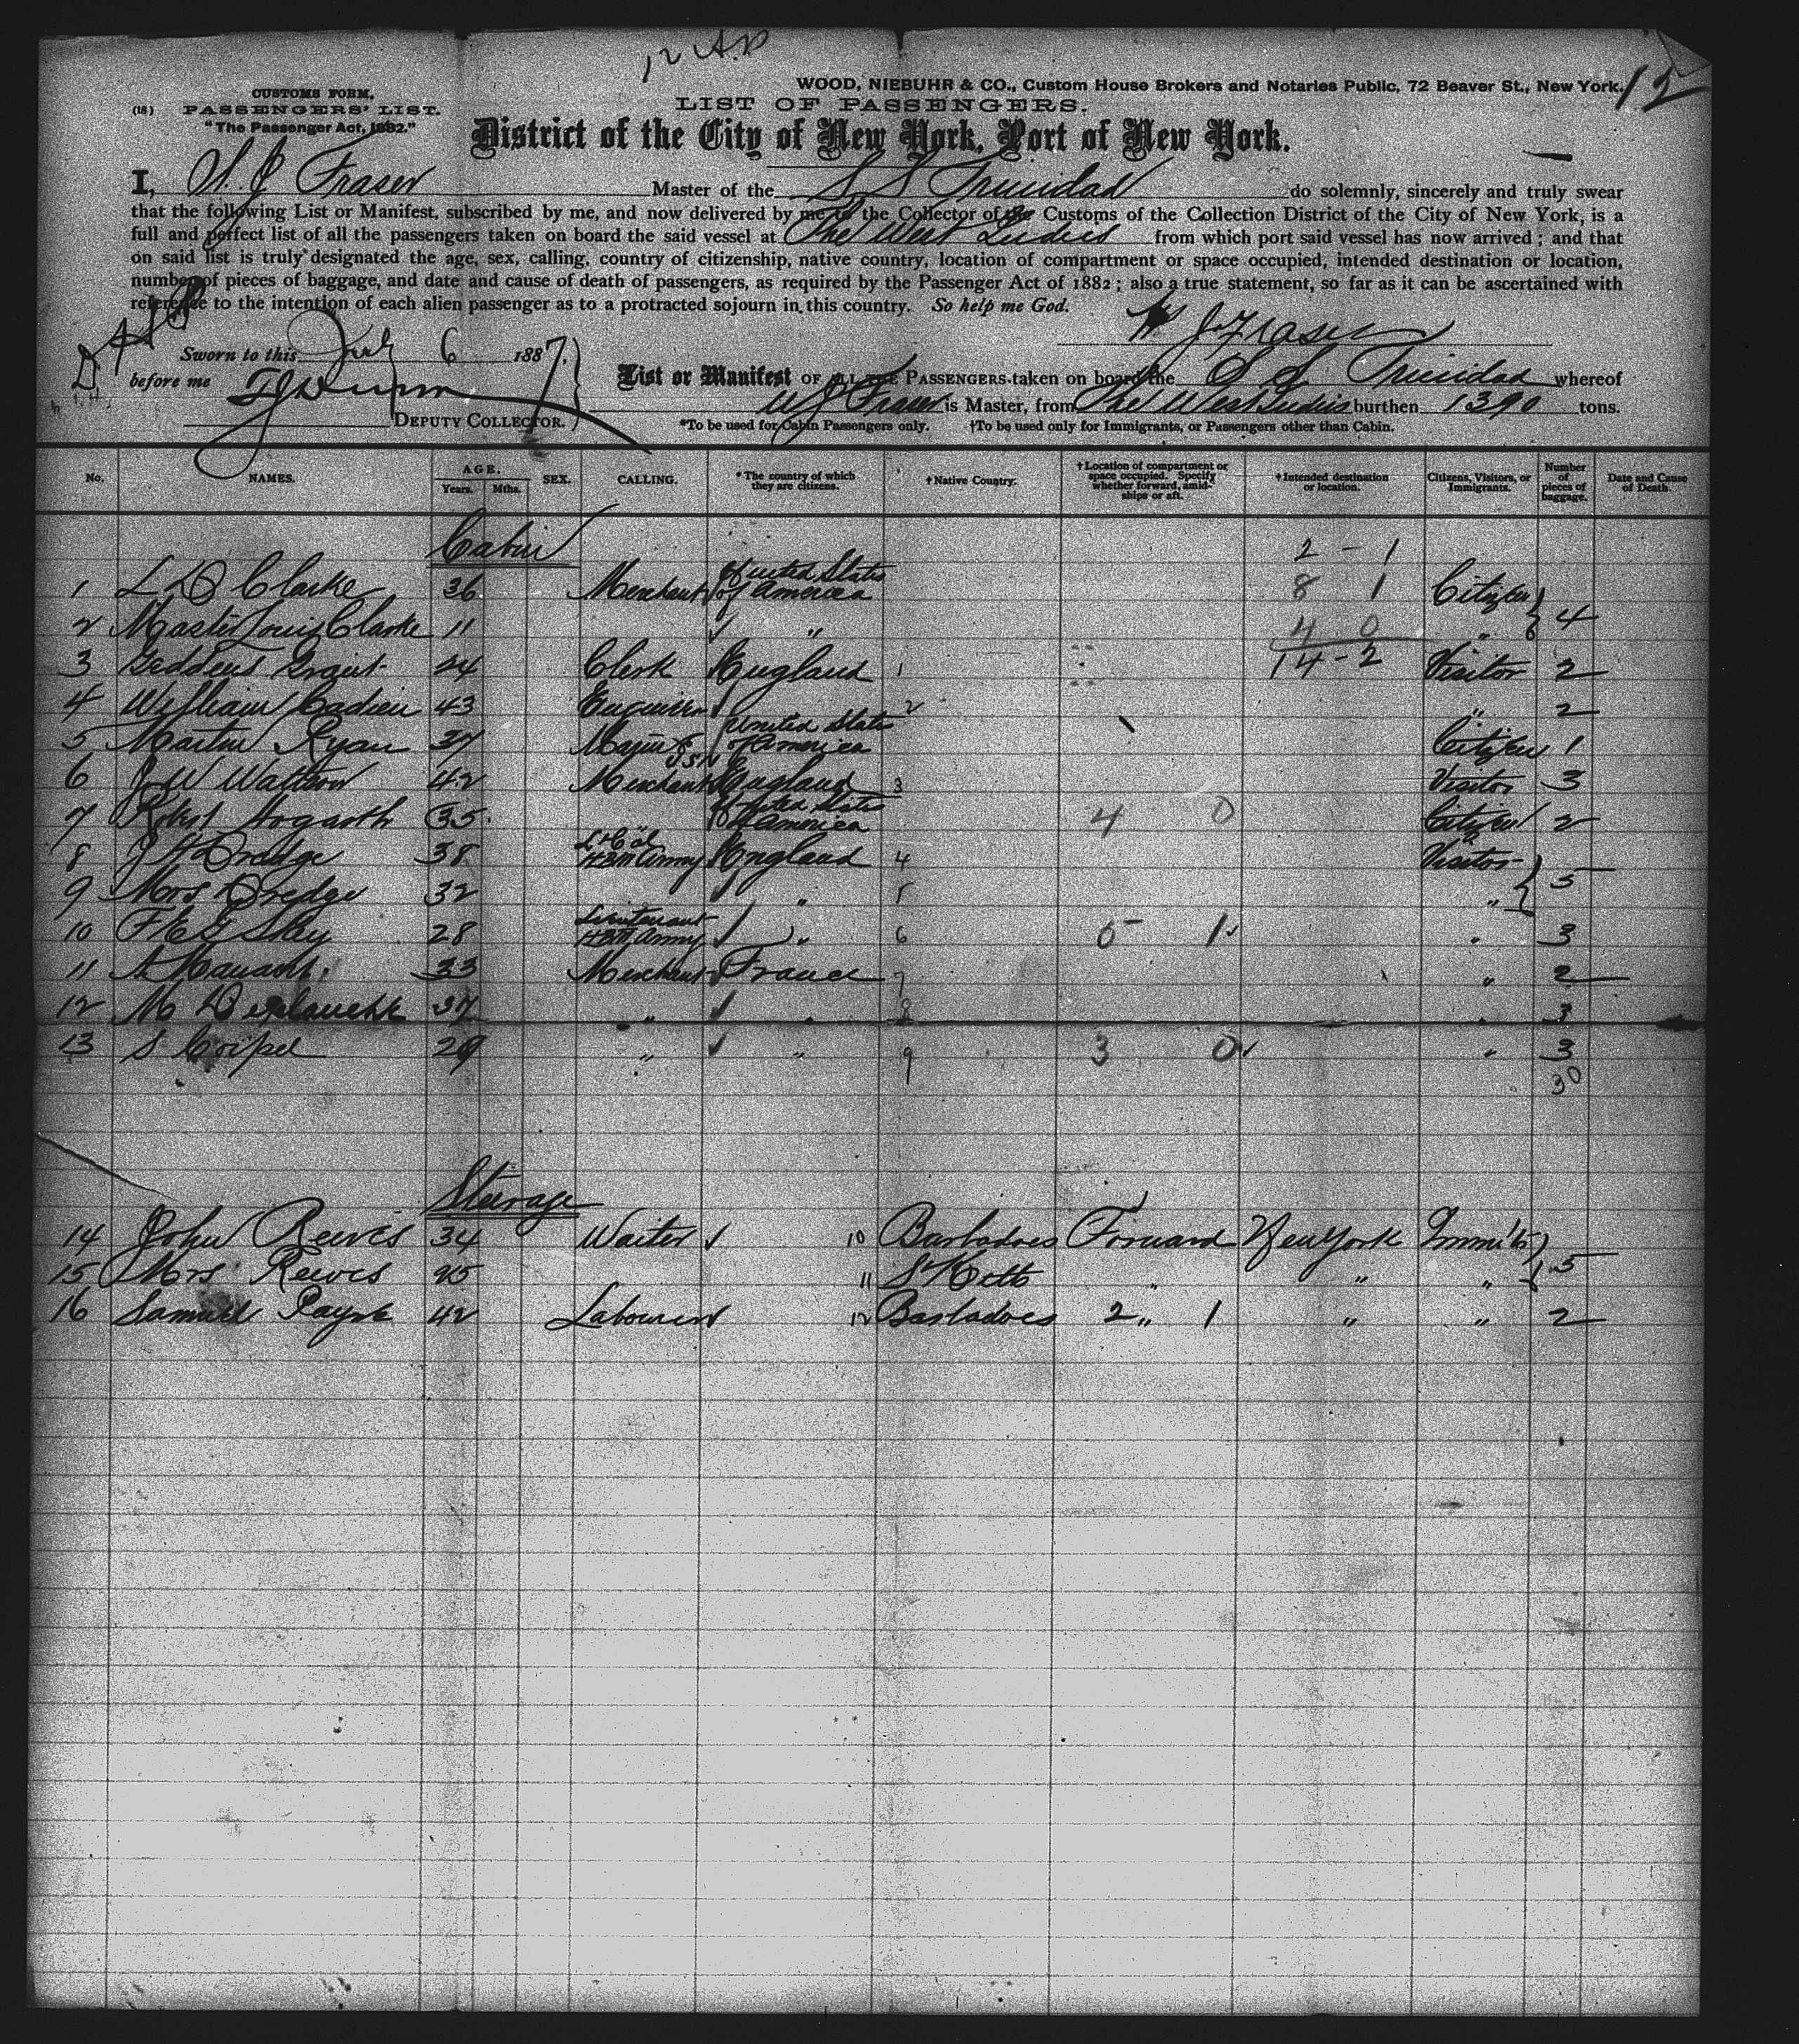 12 A.D
12
WOOD, NIEBUHR & CO., Custom House Brokers and Notaries Public, 72 Beaver St., New York.
CUSTOMS FORM,
(18) PASSENGERS' LIST.
"The Passenger Act, 1882."
LIST OF PASSENGERS.
District of the City of New York, Port of New York.
I, W. J Fraser Master of the S S Trinidad do solemnly, sincerely and truly swear
that the following List or Manifest, subscribed by me, and now delivered by me to the Collector of the Customs of the Collection District of the City of New York, is a
full and perfect list of all the passengers taken on board the said vessel at The West Indies from which port said vessel has now arrived; and that
on said list is truly designated the age, sex, calling, country of citizenship, native country, location of compartment or space occupied, intended destination or location,
number of pieces of baggage, and date and cause of death of passengers, as required by the Passenger Act of 1882; also a true statement, so far as it can be ascertained with
reference to the intention of each alien passenger as to a protracted sojourn in this country. So help me God.
W J Fraser
Sworn to this July 6 1887.
before me
DEPUTY COLLECTOR.
List or Manifest OF ALL THE PASSENGERS taken on board the S S Trinidad whereof
W J Fraser is Master, from The West Indies burthen 1390 tons.
*To be used for Cabin Passengers only. †To be used only for Immigrants, or Passengers other than Cabin.
No. NAMES. AGE. Years. Mths. SEX. CALLING. *The country of which they are citizens. †Native Country. †Location of compartment or space occupied. Specify whether forward, amidships or aft. †Intended destination or location. Citizens, Visitors, or Immigrants. Number of pieces of baggage. Date and Cause of Death.
Cabin
2 - 1
1 L D Clarke 36 Merchant United States of America 8 1 Citizen
2 Master Louis Clarke 11 " 4 0 " 4
3 Geddeus Grant 24 Clerk England 1 14 - 2 Visitor 2
4 William Cadieu 43 2 " 2
5 Martin Ryan 37 United States of America Citizen 1
6 J W Watson 42 Merchant England 3 Visitor 3
7 Robert Hogarth 35 United States of America 4 0 Citizen 2
8 J H Dredge 38 Lt Col HBM Army England 4 Visitor
9 Mrs Dredge 32 " 5 " 5
10 F E G Skey 28 Lieutenant HBM Army " 6 5 1 " 3
11 33 Merchant France 7 " 2
12 M 37 " " 8 " 3
13 S 29 " " 9 3 0 " 3
30
Steerage
14 John Reeves 34 Waiter 10 Barbadoes Forward New York Immi'ts
15 Mrs Reeves 25 11 St Kitts " " " 5
16 Samuel Payne 42 Labourer 12 Barbadoes 2 " 1 " " 2